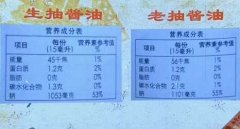 生抽酱油
营养成分表
项目 每份(15毫升) 营养素参考值%
能量 45千焦 1%
蛋白质 1.2克 2%
脂肪 0克 0%
碳水化合物 1.3克 0%
钠 1053毫克 53%
老抽酱油
营养成分表
项目 每份(15毫升) 营养素参考值%
能量 56千焦 1%
蛋白质 1.2克 2%
脂肪 0克 0%
碳水化合物 2.1克 1%
钠 1101毫克 55%